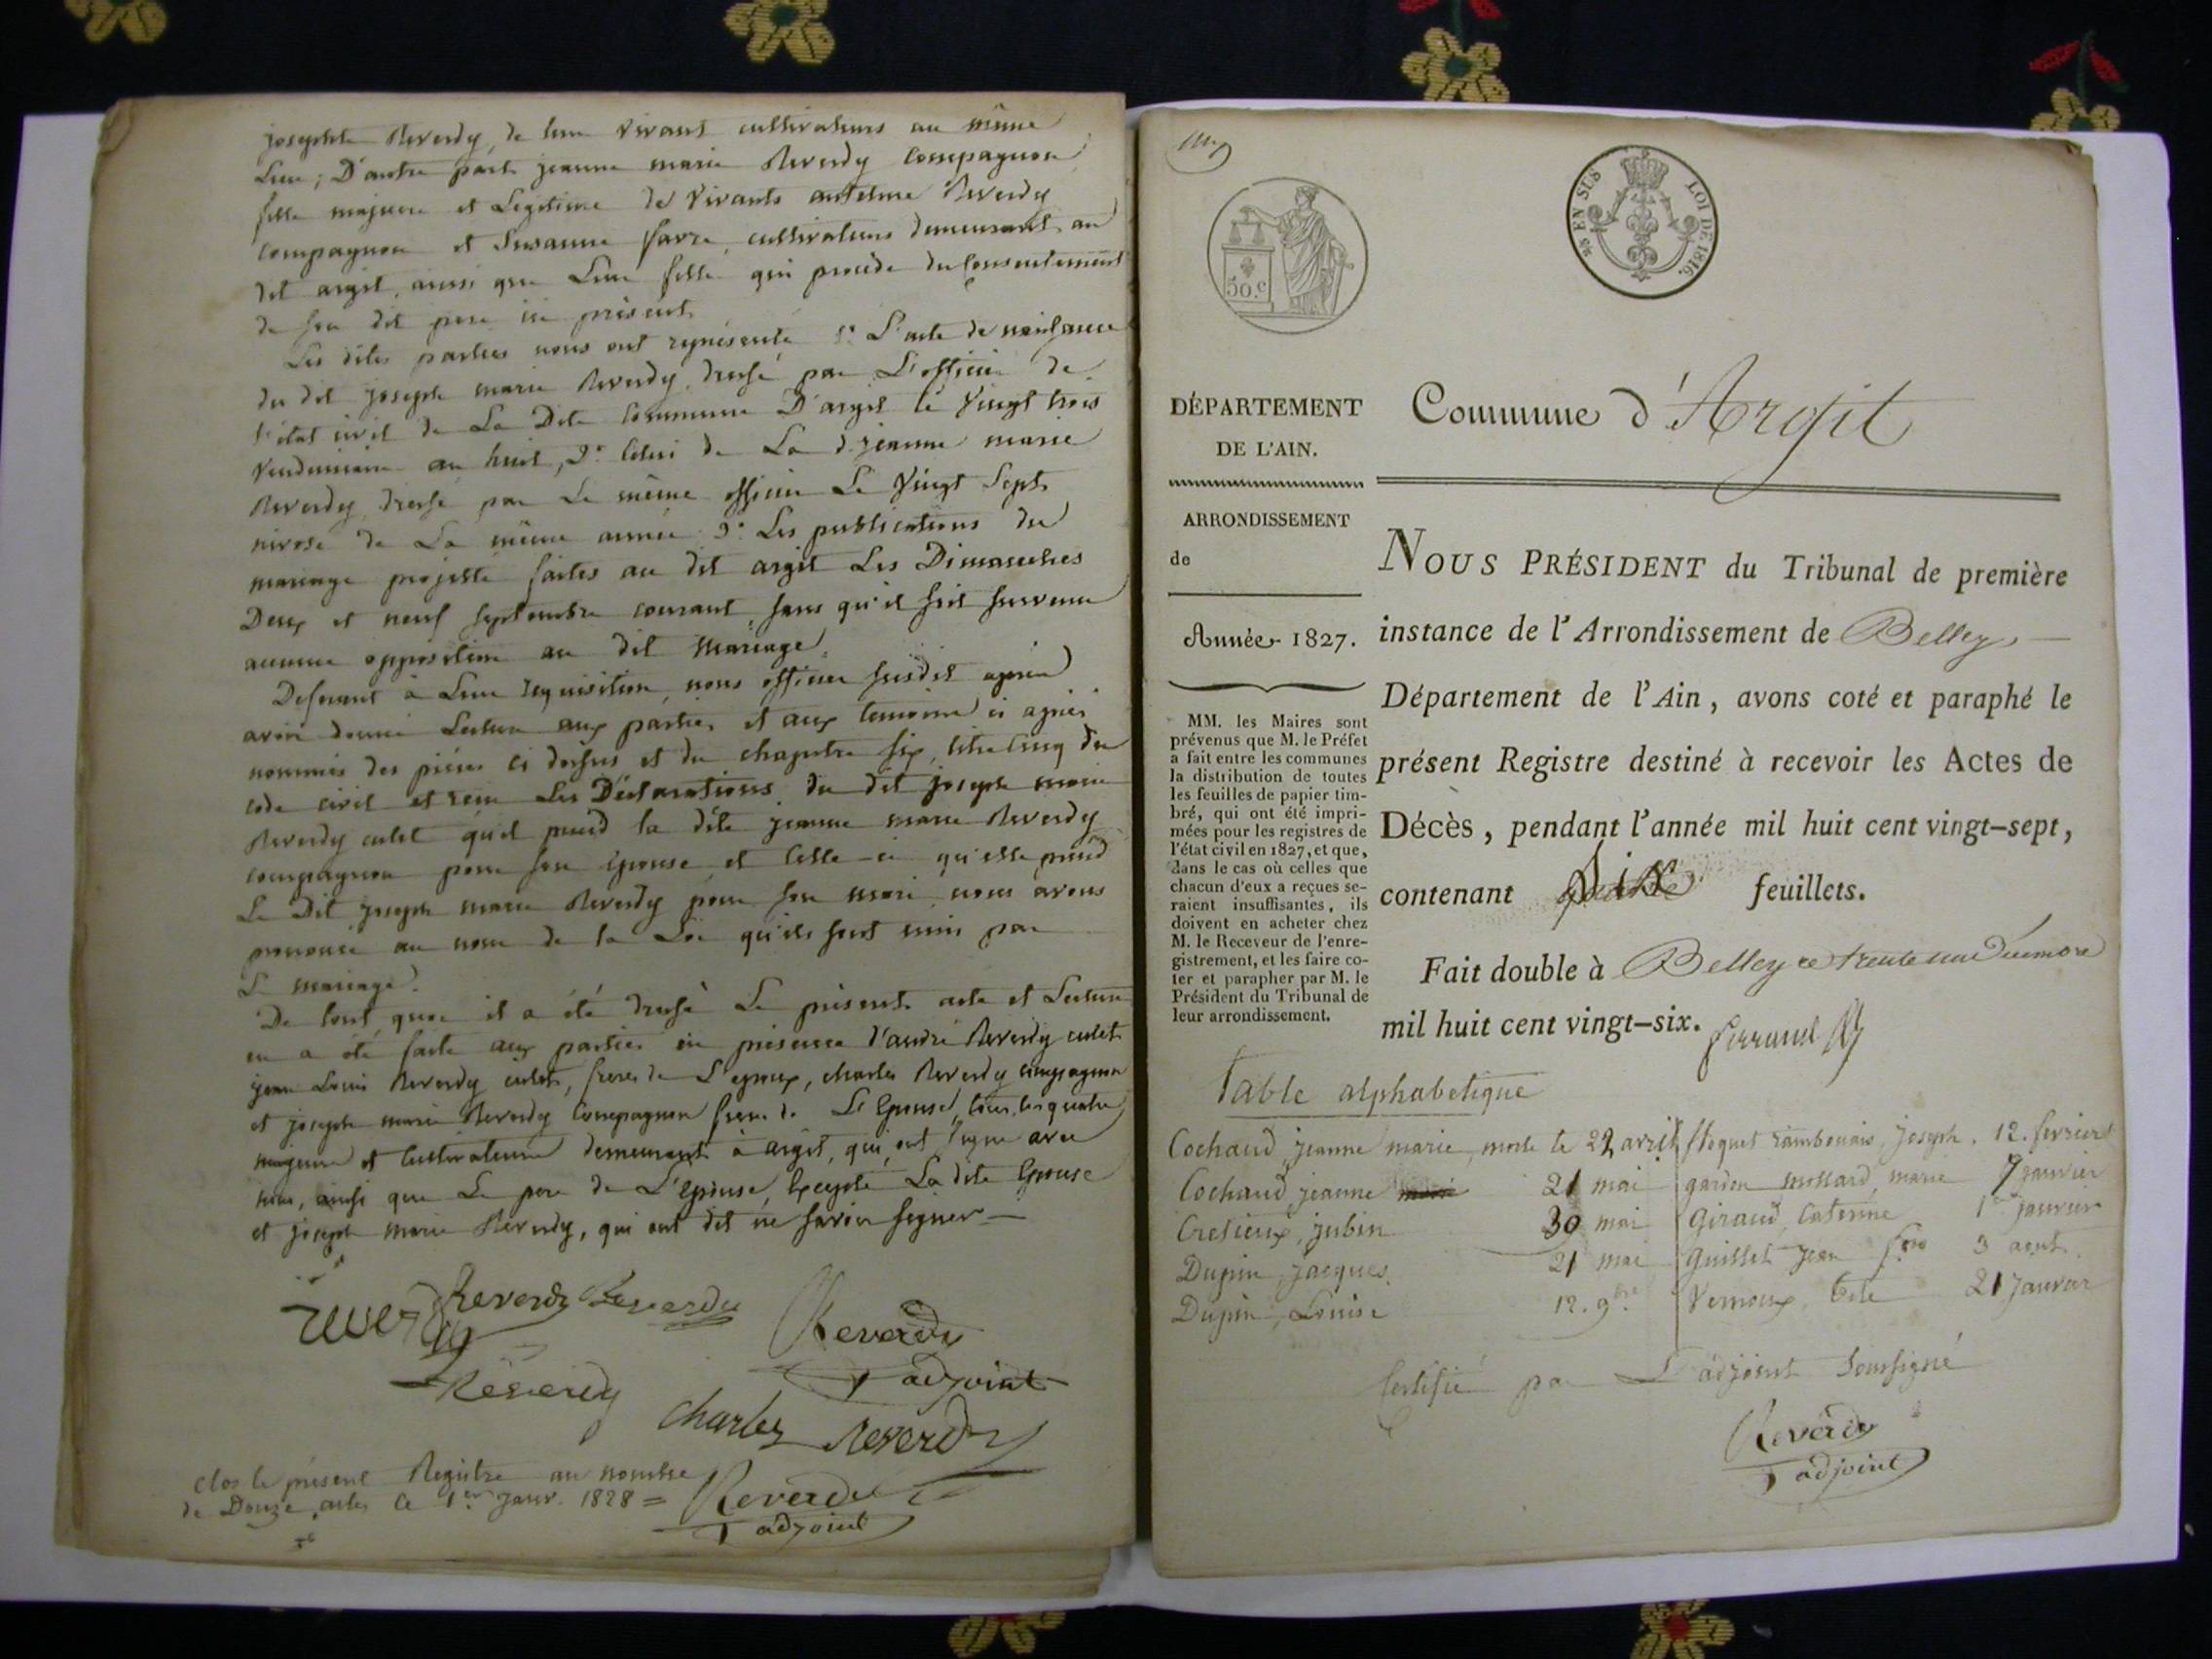 josephte Reverdy, de leur vivant cultivateurs au même
Lieu ; D'autre part jeanne marie Reverdy Compagnon
fille majeure et Legitime de vivants antelme Reverdy
compagnon et Susanne favre cultivateurs demeurant au
dit argit, ainsi que Leur fille qui procède du Consentement
de son dit pere ici présent
Les dites parties nous ont représenté 1° L'acte de naissance
du dit joseph marie Reverdy, dressé par L'officier de
l'état civil de La Dite Commune D'argit le vingt trois
vendemiaire an huit, 2° Celui de La d. jeanne marie
Reverdy dressé par Le même officier Le vingt Sept
nivose de La même année 3° Les publications du
mariage projetté faites au dit argit Les Dimanches
Deux et neuf septembre courant, sans qu'il soit survenu
aucune opposition au dit mariage.
Deferant à Leur requisition, nous officier susdit après
avoir donné Lecture aux parties et aux temoins ci après
nommés des pièces ci dessus et du chapitre six, titre cinq du
code civil et reçu Les Déclarations du dit joseph marie
Reverdy culet qu'il prend la dite jeanne marie Reverdy
compagnon pour son épouse et Celle-ci qu'elle prend
Le Dit joseph marie Reverdy pour son mari nous avons
prononcé au nom de la Loi qu'ils sont unis par
Le mariage.
De tout quoi il a été dressé Le présent acte et Lecture
en a été faite aux parties en présence d'andré Reverdy culet
jean Louis Reverdy culet, freres de L'epoux, charles Reverdy compagnon
et joseph marie Reverdy Compagnon freres de L'Epouse, tous les quatre
majeurs et Cultivateurs demeurant à argit, qui ont signé avec
nous, ainsi que Le pere de L'épouse, Excepté La dite Epouse
et joseph marie Reverdy, qui ont dit ne savoir signer —
Reverdy Reverdy
Reverdy
adjoint
Reverdy
Charles Reverdy
Clos le présent Registre au nombre
de Douze actes le 1er Janv. 1828 = Reverdy
adjoint
EN SUS
LOI DE 1816.
50.c
DÉPARTEMENT
DE L'AIN.
Commune d'Argit
ARRONDISSEMENT
de
Année 1827.
MM. les Maires sont
prévenus que M. le Préfet
a fait entre les communes
la distribution de toutes
les feuilles de papier tim-
bré, qui ont été impri-
mées pour les registres de
l'état civil en 1827, et que,
dans le cas où celles que
chacun d'eux a reçues se-
raient insuffisantes, ils
doivent en acheter chez
M. le Receveur de l'enre-
gistrement, et les faire co-
ter et parapher par M. le
Président du Tribunal de
leur arrondissement.
NOUS PRÉSIDENT du Tribunal de première
instance de l'Arrondissement de Belley
Département de l'Ain, avons coté et paraphé le
présent Registre destiné à recevoir les Actes de
Décès, pendant l'année mil huit cent vingt-sept,
contenant Six feuillets.
Fait double à Belley ce trente un Décembre
mil huit cent vingt-six.
Table alphabetique
Cochaud jeanne marie morte le 22 avril
Cochaud, jeanne 21 mai
Cretieux, jubin 30 mai
Dupin, jacques 21 mai
Dupin, Louise 12. 9bre
floquet rambouais, joseph, 12. fevrier
gardon mollard marie 7 janvier
Giraud, Caterine 1er janvier
Guillet Jean fois 3 aout
Vernoux 21 janvier
Certifié par L'adjoint soussigné
Reverdy
adjoint